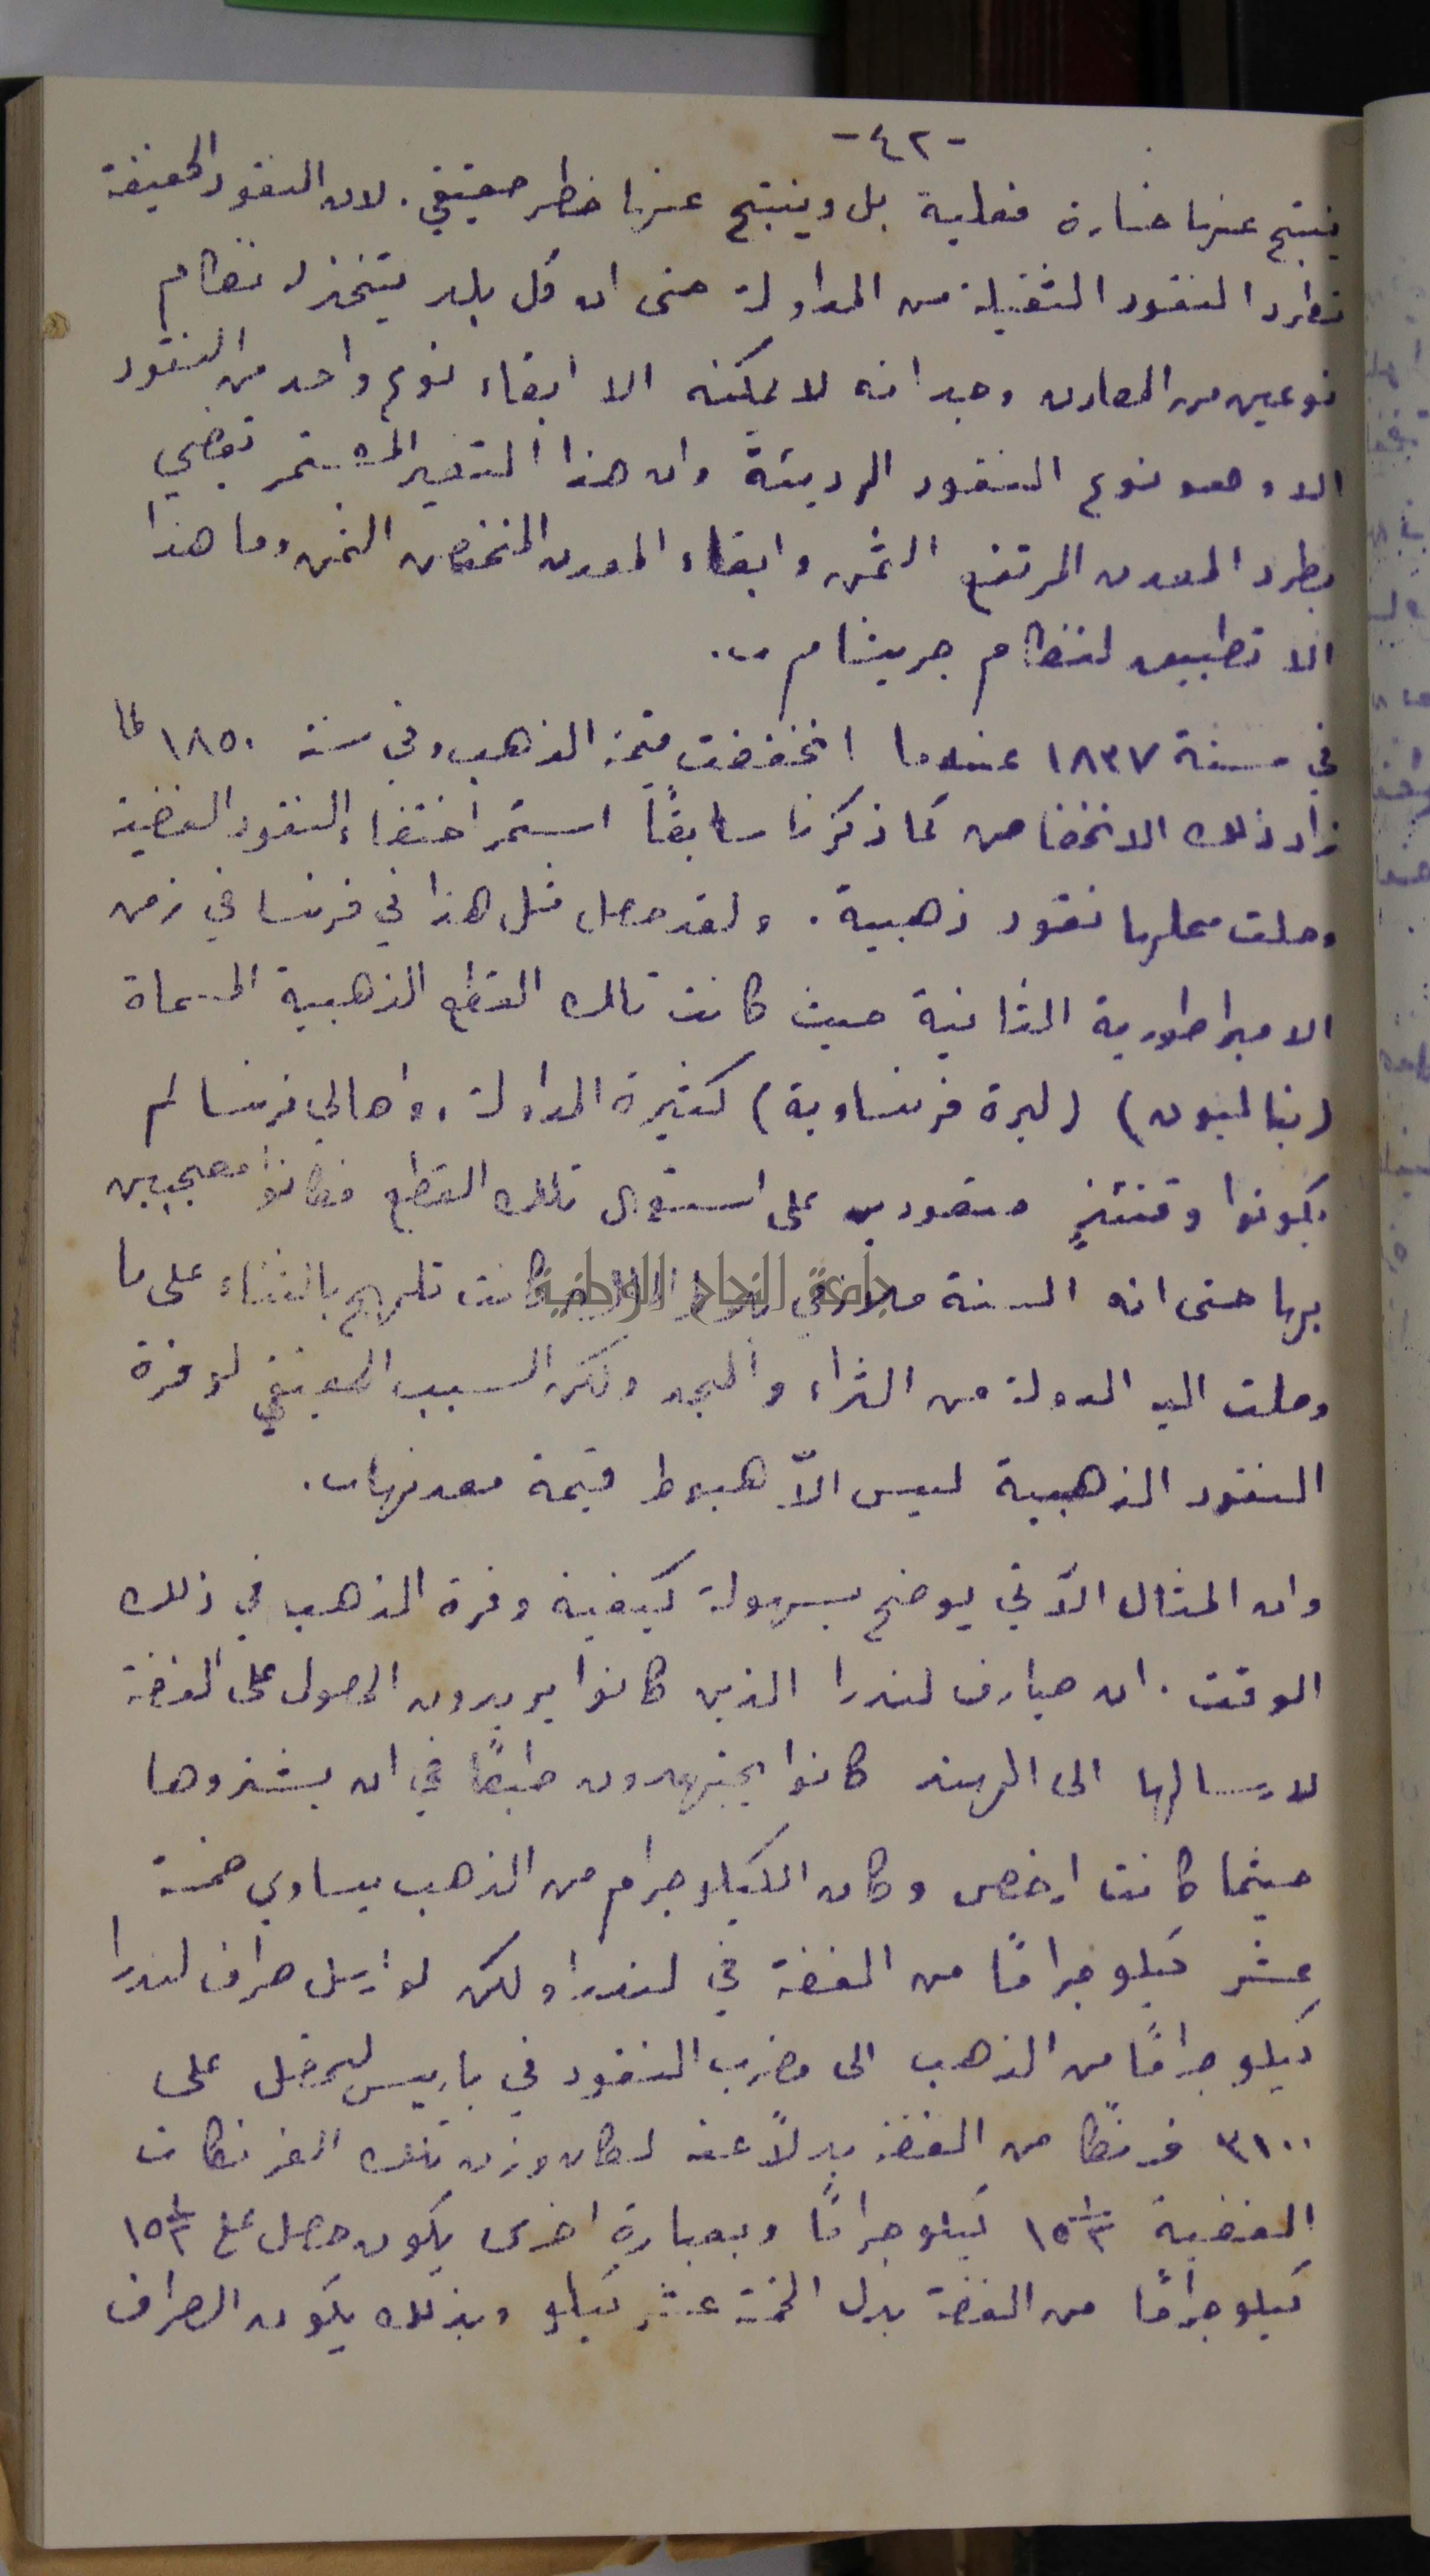 -٤٢-
ينتج عنها خسارة فعلية بل وينتج عنها خطر حقيقي. لان النقود الخفيفة
تطرد النقود الثقيلة من المداولة حتى ان كل بلد يتخذ نظام
نوعين من المعادن وجد انه لا يمكنه الا ابقاء نوع واحد من النقود
الا وهو نوع النقود الرديئة وان هذا التغير المستمر يقضي
بطرد المعدن المرتفع الثمن وابقاء المعدن المنخفض الثمن وما هذا
الا تطبيق لنظام جريشام ..
في سنة ١٨٣٧ عندما انخفضت قيمة الذهب وفي سنة ١٨٥٠ لما
زاد ذلك الانخفاض كما ذكرنا سابقًا استمر اختفاء النقود الفضية
وحلت محلها نقود ذهبية. ولقد حصل مثل هذا في فرنسا في زمن
الامبراطورية الثانية حيث كانت تلك القطع الذهبية المسماة
(بنالبون) (ليرة فرنساوية) كثيرة المداولة، واهالي فرنسا لم
يكونوا وقتئذٍ متعودين على استعمال تلك القطع فكانوا معجبين
بها حتى انه السنة كانت تلهج بالثناء على ما
وصلت اليه الدولة من الثراء والمجد ولكن السبب الحقيقي لوفرة
النقود الذهبية ليس الاّ هبوط قيمة معدنها.
وان المثال الآتي يوضح بسهولة كيفية وفرة الذهب في ذلك
الوقت. ان صيارف لندرا الذين كانوا يريدون الحصول على الفضة
لارسالها الى الهند كانوا يجتهدون طبعًا في ان يشتروها
حيثما كانت ارخص وكان الكيلوجرام من الذهب يساوي خمسة
عشر كيلوجرامًا من الفضة في لندرا ولكن لو ارسل صراف لندرا
كيلوجرامًا من الذهب الى مضرب النقود في باريس ليحصل على
٣١٠٠ فرنكًا من الفضة بدلاً عنه لكان وزن تلك الفرنكات
الفضية ١٥½ كيلوجرامًا وبعبارة اخرى يكون حصل على ١٥½
كيلوجرامًا من الفضة بدل الخمسة عشر كيلو وبذلك يكون الصراف
جامعة النجاح الوطنية